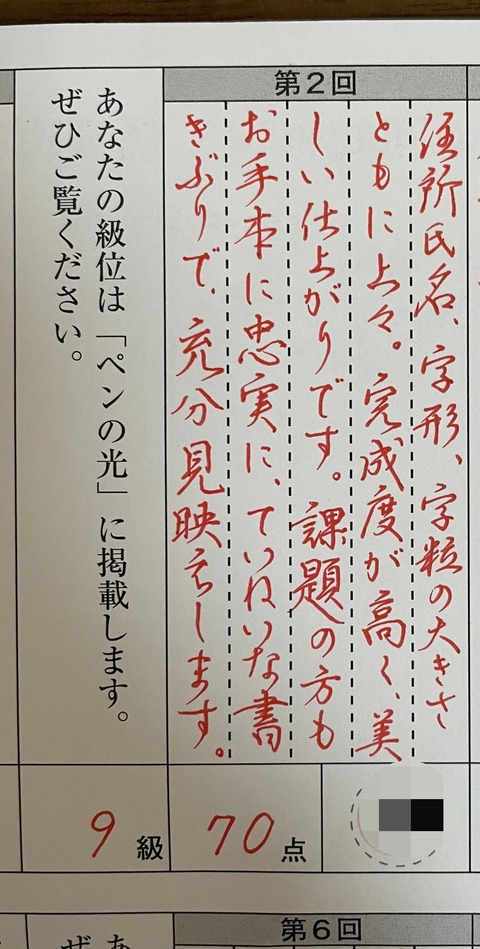 第2回
住所氏名、字形、字粒の大きさ
ともに上々。完成度が高く、美
しい仕上がりです。課題の方も
お手本に忠実に、ていねいな書
きぶりで、充分見映えします。
あなたの級位は「ペンの光」に掲載します。
ぜひご覧ください。
70点
9級
第6回
あ
ぜ